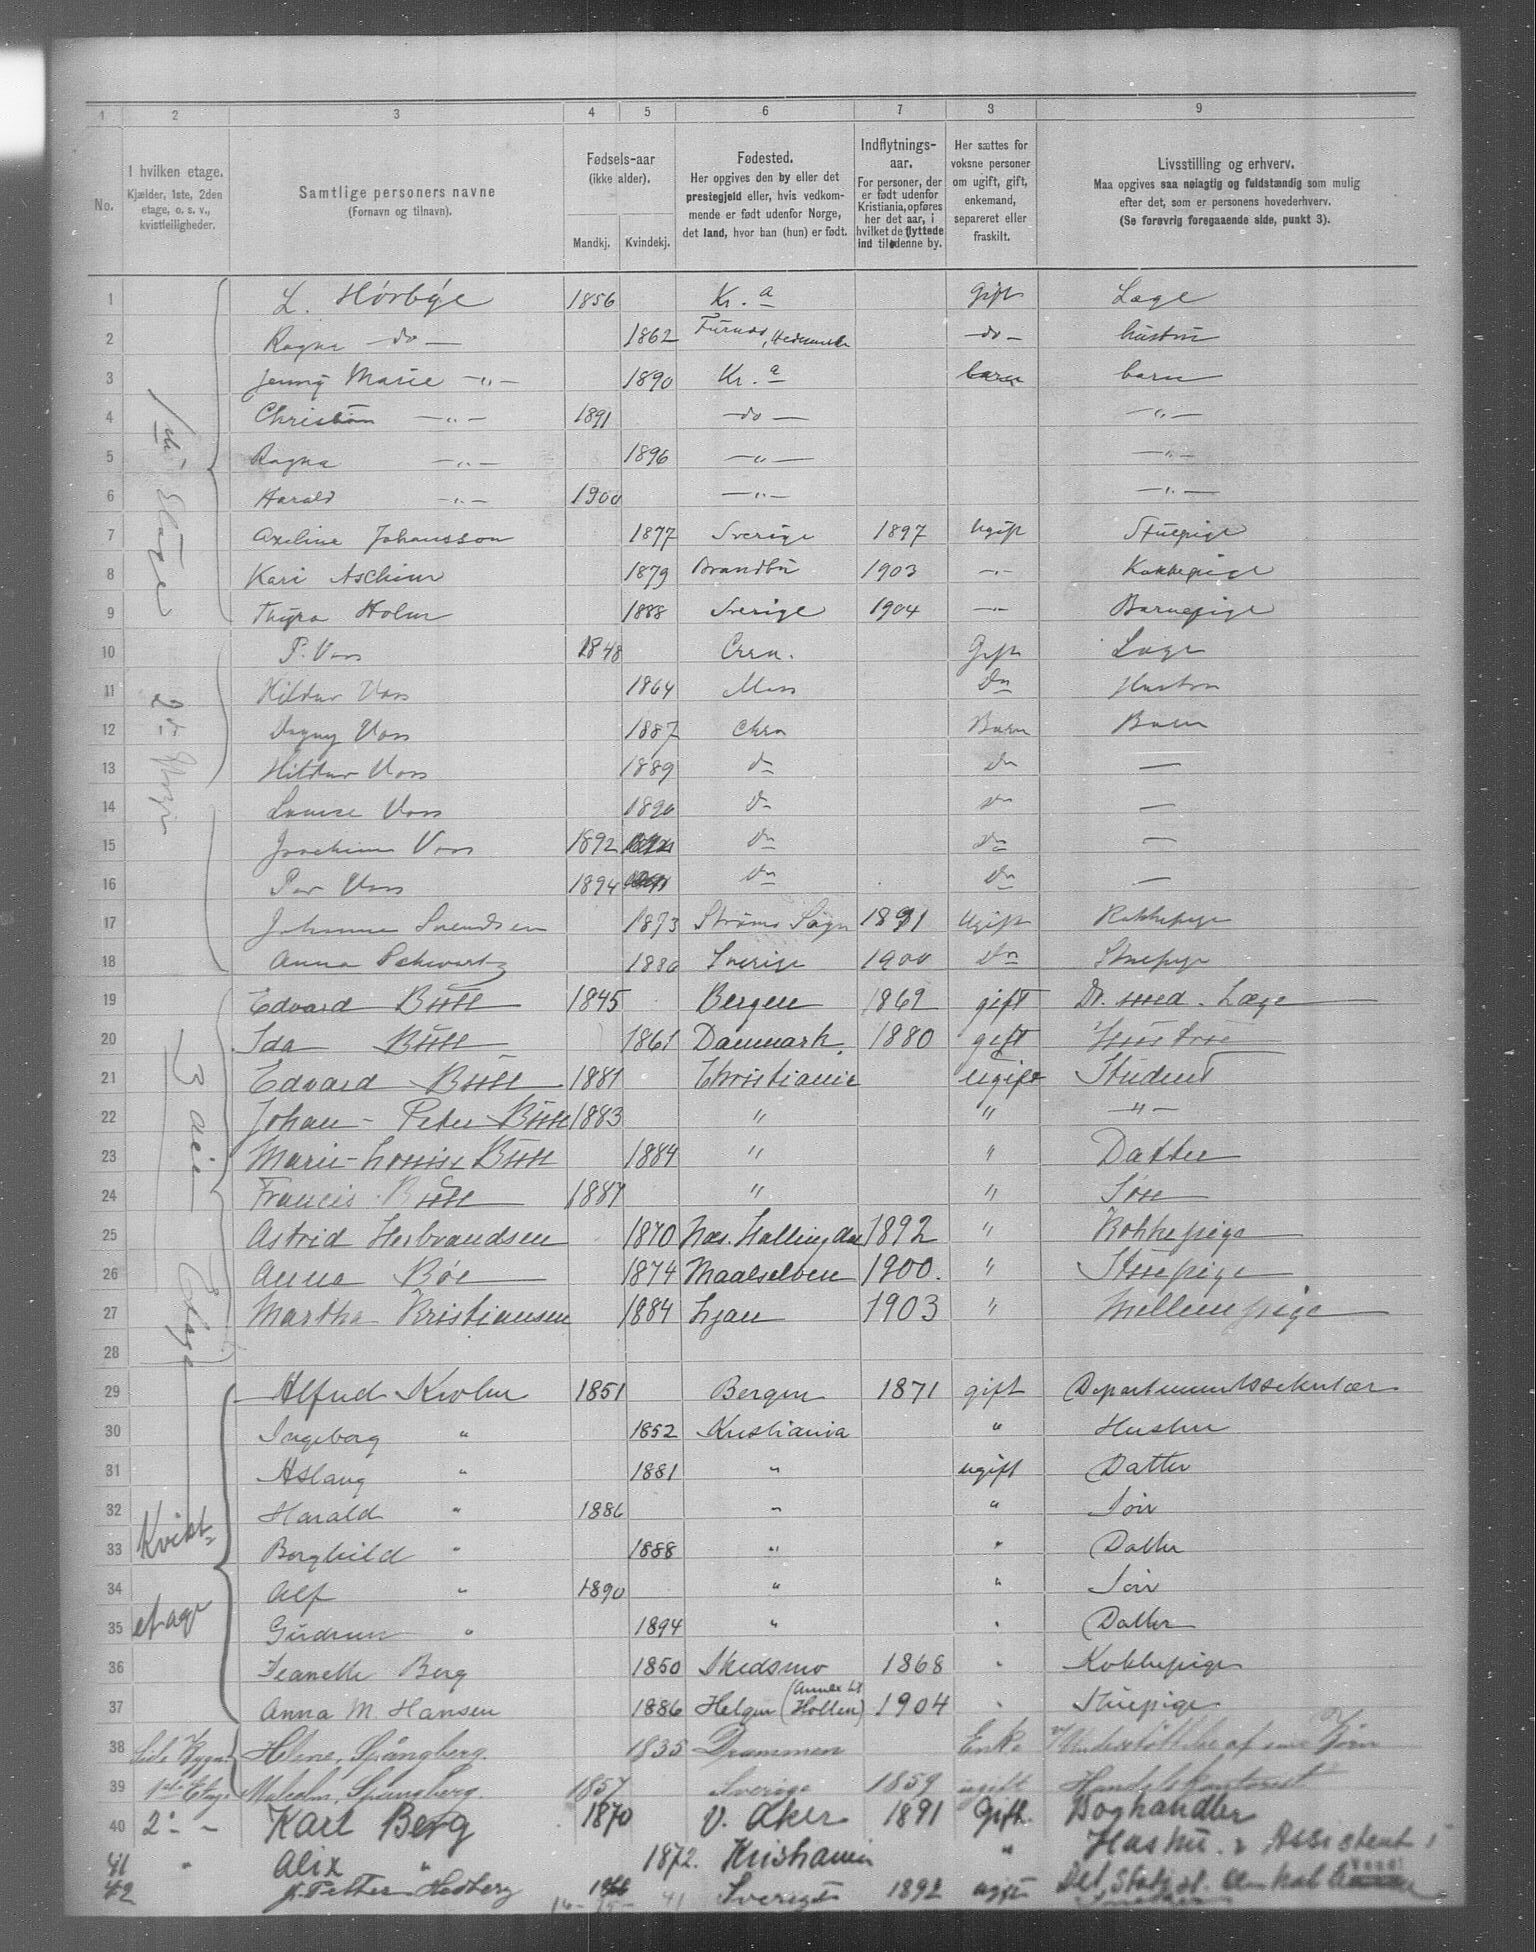 1 2 3 4 5 6 7 8 9
No. I hvilken etage. Kjælder, 1ste, 2den etage, o. s. v., kvistleiligheder.
Samtlige personers navne (Fornavn og tilnavn).
Fødsels-aar (ikke alder). Mandkj. Kvindekj.
Fødested. Her opgives den by eller det prestegjeld eller, hvis vedkommende er født udenfor Norge, det land, hvor han (hun) er født.
Indflytnings-aar. For personer, der er født udenfor Kristiania, opføres her det aar, i hvilket de flyttede ind til denne by.
Her sættes for voksne personer om ugift, gift, enkemand, separeret eller fraskilt.
Livsstilling og erhverv. Maa opgives saa nøiagtig og fuldstændig som mulig efter det, som er personens hovederhverv. (Se forøvrig foregaaende side, punkt 3).
1 L. Hørbye 1856 Kr.a Gift Læge
2 Ragna -do- 1862 Furnes, Hedemark -do- hustru
3 Jenny Marie -„- 1890 Kr.a barn barn
4 Christian -„- 1891 -do- -„-
5 Ragna -„- 1896 -„- -„-
6 Harald -„- 1900 -„- -„-
7 Axeline Johansson 1877 Sverige 1897 Ugift Stuepige
8 Kari Aschim 1879 Brandbu 1903 -„- Kokkepige
9 Thyra Holm 1888 Sverige 1904 -„- Barnepige
10 P. Voss 1848 Chra. Gift Læge
11 Hildur Voss 1864 Moss Do Hustru
12 Dagny Voss 1887 Chra Barn Barn
13 Hildur Voss 1889 do Do —
14 Louise Voss 1890 do do —
15 Joachim Voss 1892 do do —
16 Per Voss 1894 do do —
17 Johanne Svendsen 1873 Strøms Sogn 1891 Ugift Kokkepige
18 Anna Schwartz 1880 Sverige 1900 Do Stuepige
19 Edvard Bull 1845 Bergen 1869 gift Dr. med. Læge
20 Ida Bull 1861 Danmark. 1880 gift Hustrue
21 Edvard Bull 1881 Christiania Ugift Student
22 Johan-Peter Bull 1883 " " -"-
23 Marie-Louise Bull 1884 " " Datter
24 Francis Bull 1887 " " Søn
25 Astrid Herbrandsen 1870 Næs. Hallingdal 1892 " Kokkepige
26 Anna Bøe 1874 Maalselven 1900. " Stuepige
27 Martha Kristiansen 1884 Ljan 1903 " Mellempige
28
29 Alfred Krohn 1851 Bergen 1871 gift Departementssekretær
30 Ingeborg " 1852 Kristiania " Hustru
31 Aslaug " 1881 " ugift Datter
32 Harald " 1886 " " Søn
33 Borghild " 1888 " " Datter
34 Alf " 1890 " " Søn
35 Gudrun " 1894 " " Datter
36 Jeanette Berg 1850 Skedsmo 1868 " Kokkepige
37 Anna M. Hansen 1886 Helgen (Annex til Hollen) 1904 " Stuepige
38 Side Bygn. Helene, Spångberg. 1835 Drammen Enke Understøttelse af sine Børn
39 1ste Etag. Malcolm, Spångberg. 1857 Sverige 1859 ugift Handelskontorist
40 2. - Karl Berg 1870 V. Aker 1891 Gift Boghandler
41 " Alix " 1872. Kristiania " Hustru. & Assistent i
42 J. Petter Hedberg Sverige 1892 ugift Det Statist. Centralb
1ste Etage
2den Etage
3die Etage
Kvist-
etage